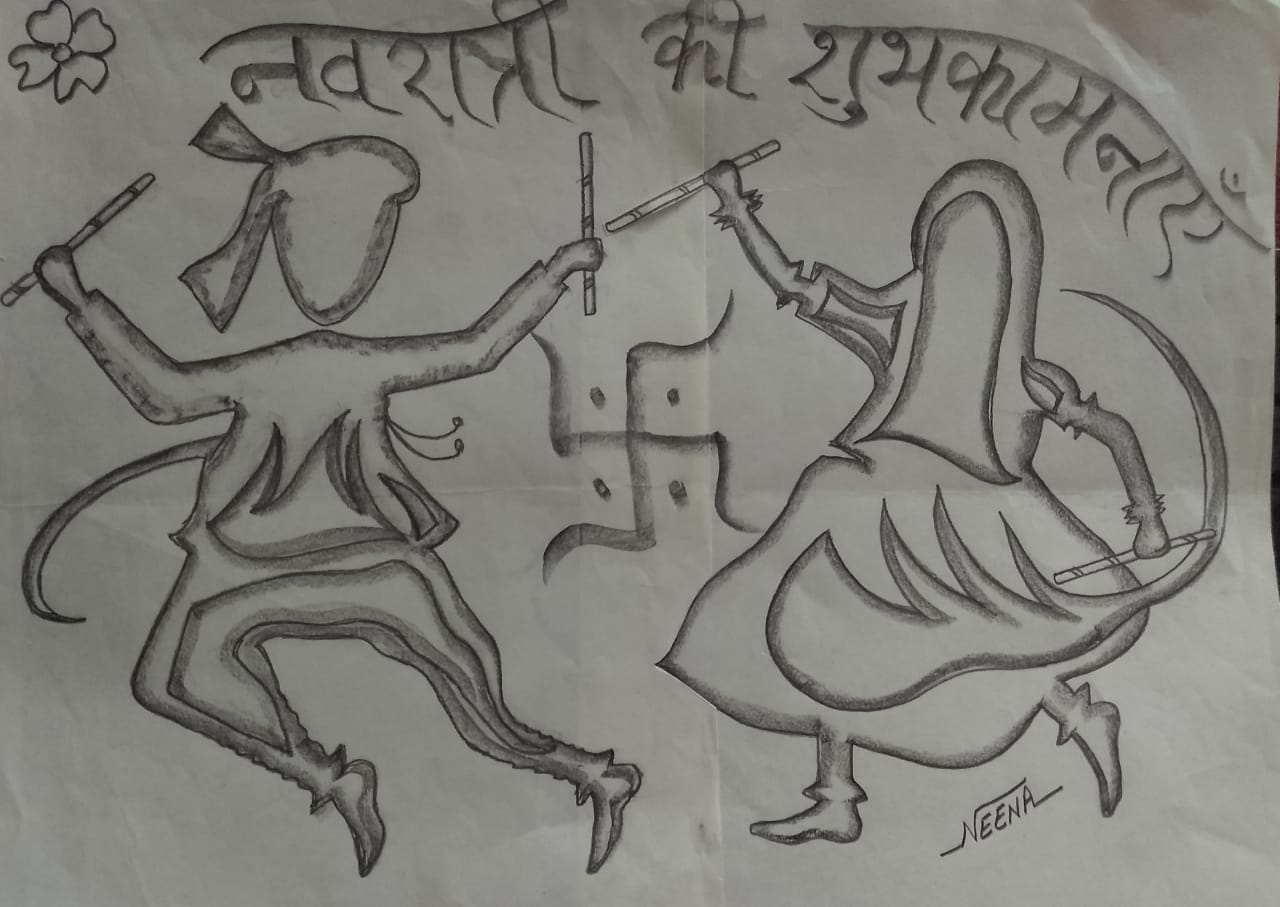 नवरात्री की शुभकामनाएँ
NEENA